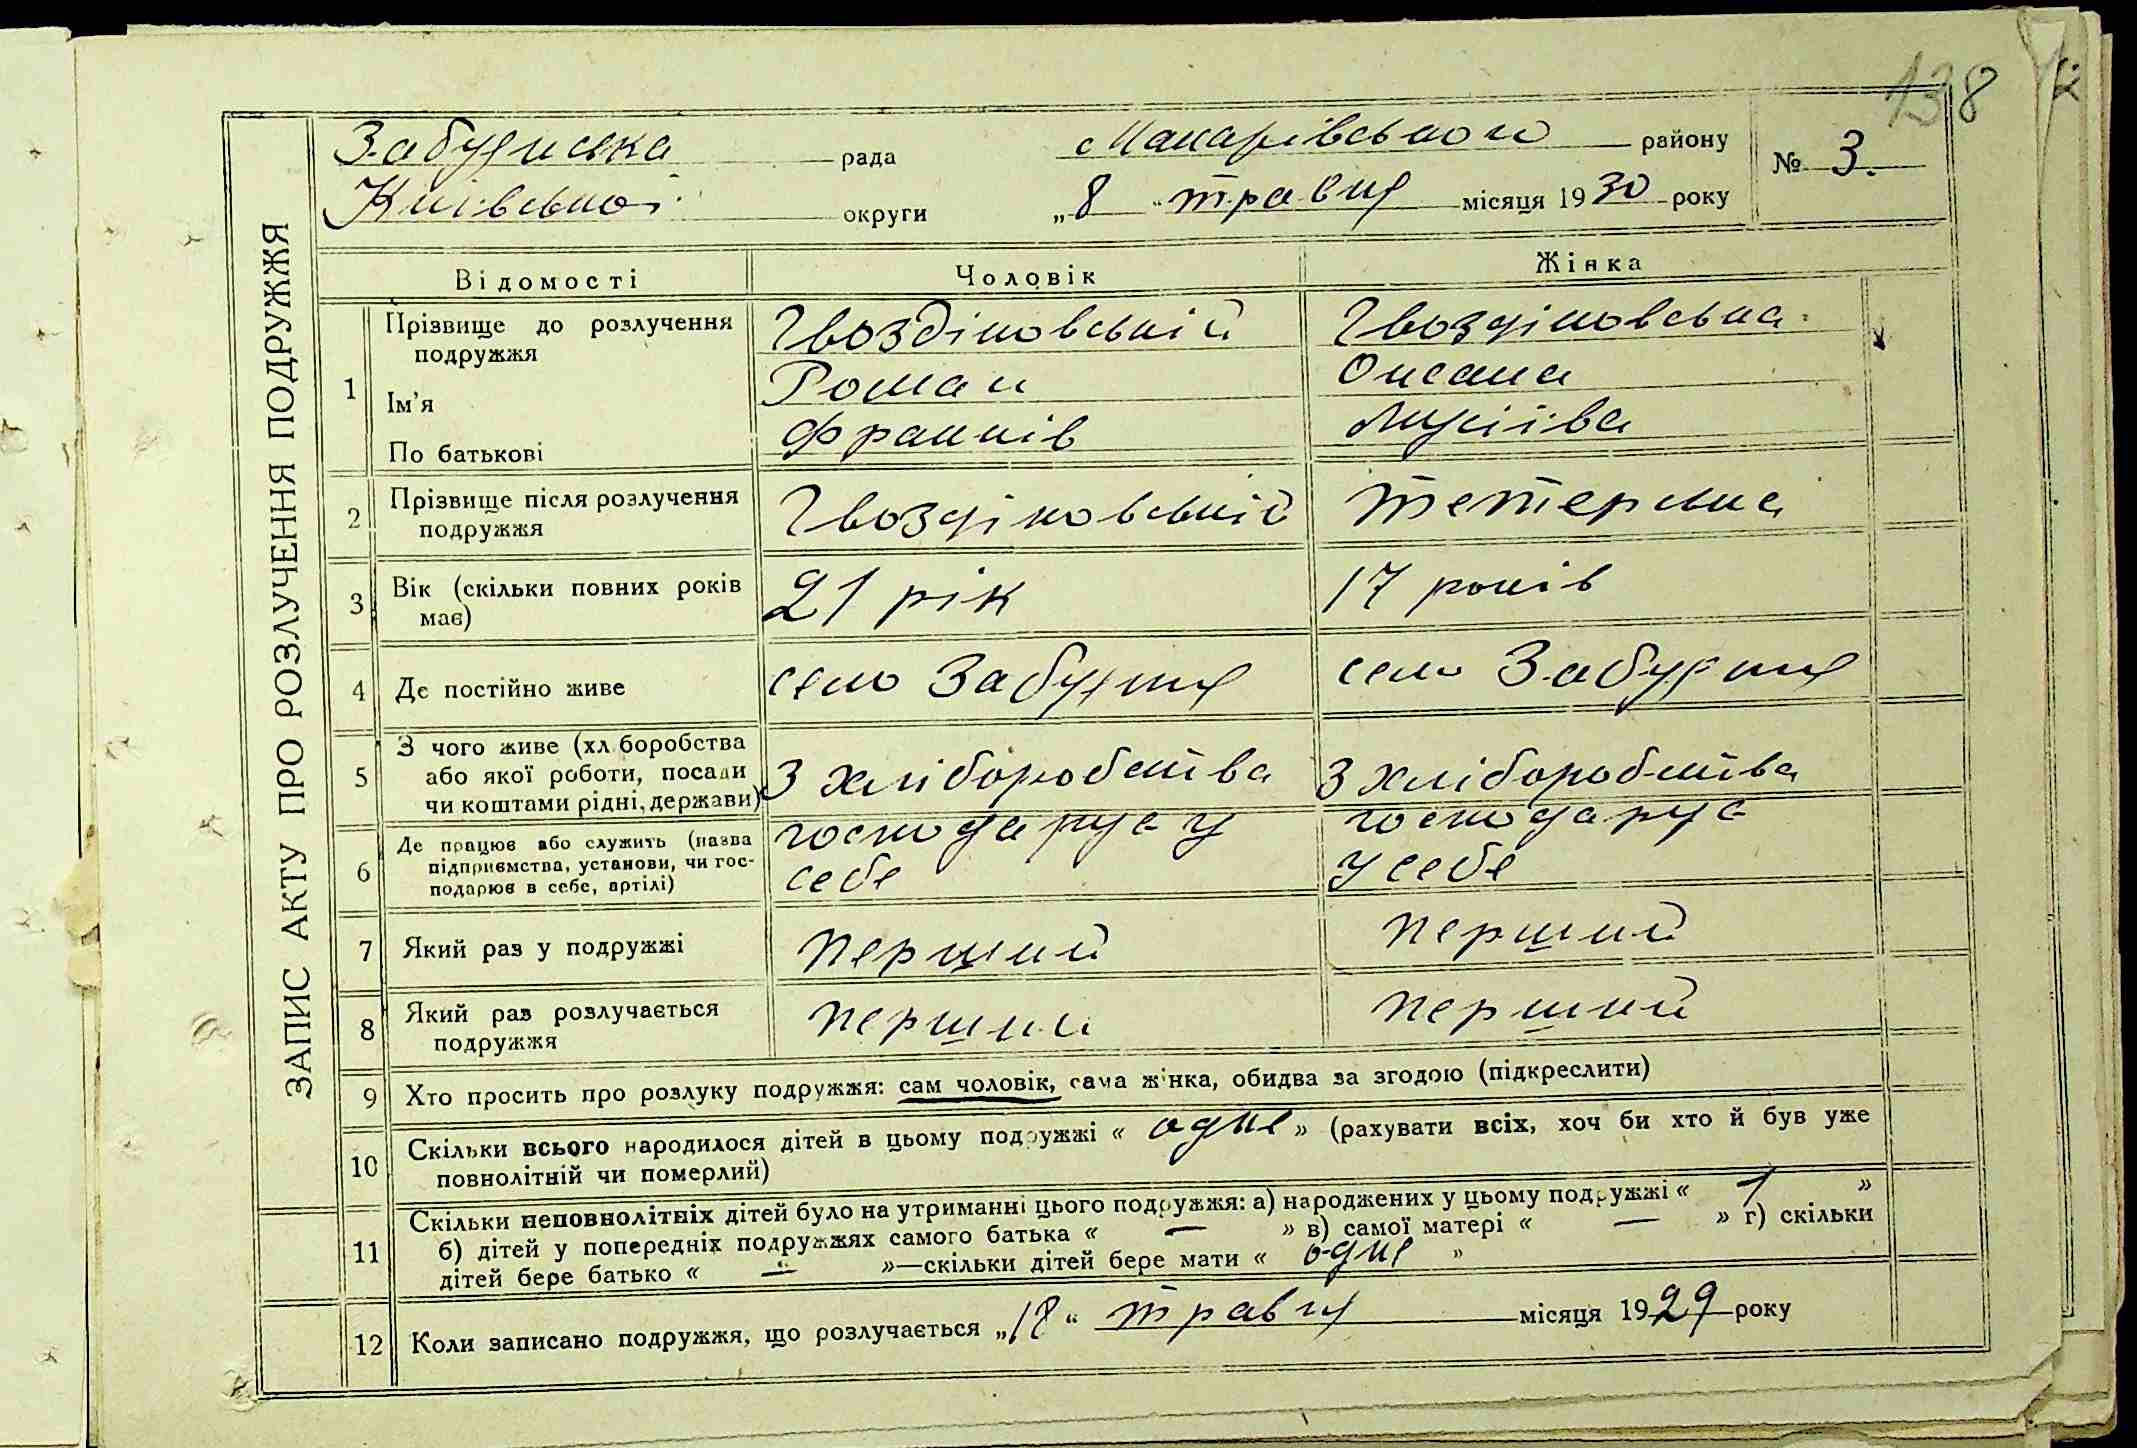 138
Забуянська рада Макарівського району № 3.
Київської округи „8" травня місяця 1930 року
ЗАПИС АКТУ ПРО РОЗЛУЧЕННЯ ПОДРУЖЖЯ
Відомості Чоловік Жінка
1 Прізвище до розлучення подружжя Гвоздіковській Гвоздіковська
Ім'я Роман Оксана
По батькові Франків
2 Прізвище після розлучення подружжя Гвоздіковській Тетерська
3 Вік (скільки повних років має) 21 рік 17 років
4 Де постійно живе село Забуяння село Забуяння
5 З чого живе (хліборобства або якої роботи, посади чи коштами рідні, держави) З хліборобства З хліборобства
6 Де працює або служить (назва підприємства, установи, чи господарює в себе, артілі) господарує у себе господарує у себе
7 Який раз у подружжі перший перший
8 Який раз розлучається подружжя перший перший
9 Хто просить про розлуку подружжя: сам чоловік, сама жінка, обидва за згодою (підкреслити)
10 Скільки всього народилося дітей в цьому подружжі « одне » (рахувати всіх, хоч би хто й був уже
повнолітній чи померлий)
11 Скільки неповнолітніх дітей було на утриманні цього подружжя: а) народжених у цьому подружжі « 1 »
б) дітей у попередніх подружжях самого батька « — » в) самої матері « — » г) скільки
дітей бере батько « — »—скільки дітей бере мати « одне »
12 Коли записано подружжя, що розлучається „18" травня місяця 1929 року